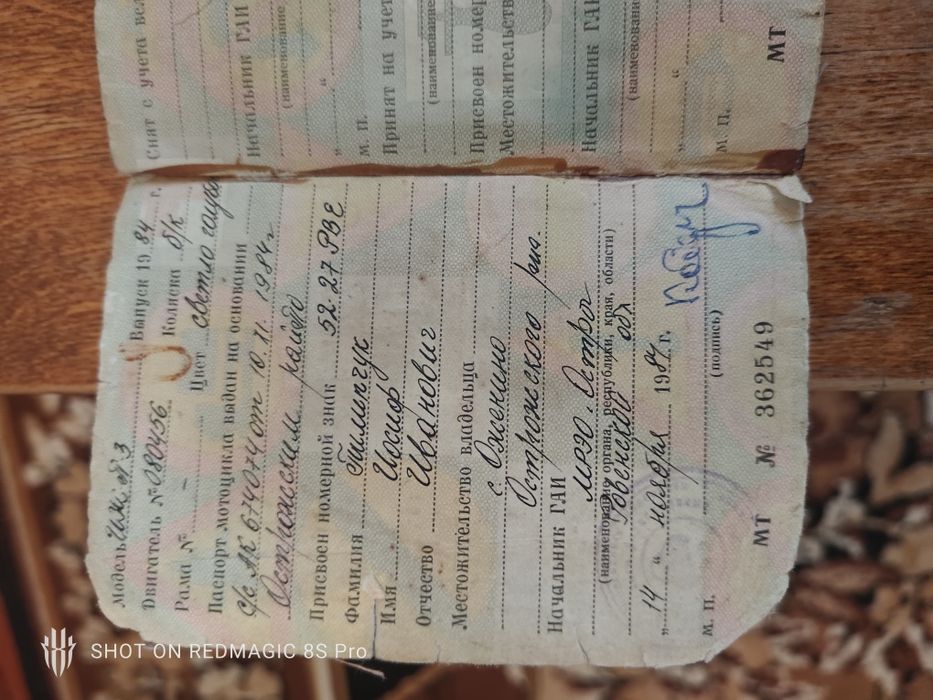 Модель ИЖ Ю3 Выпуск 1984 г.
Двигатель № 080456 Коляска б/к
Рама № – Цвет светло
Паспорт мотоцикла выдан на основании
с/с АК 674074 от 10.11.1984г
Острожским райпо
Присвоен номерной знак 52-27 РВЕ
Фамилия
Имя Иосиф
Отчество Иванович
Местожительство владельца
с. Оженино
Острожского р-на.
Начальник ГАИ МРЭО г. Острог
(наименование органа, республики, края, области)
Ровенской обл
„14“ ноября 1984 г.
м. П. (подпись)
МТ № 362549
Снят с учета
Начальник ГАИ
(наименование
„ “
м. П.
Принят на учет
(наименование
Присвоен номер
Местожительств
Начальник ГАИ
(наименование
„ “
м. П.
МТ
SHOT ON REDMAGIC 8S Pro